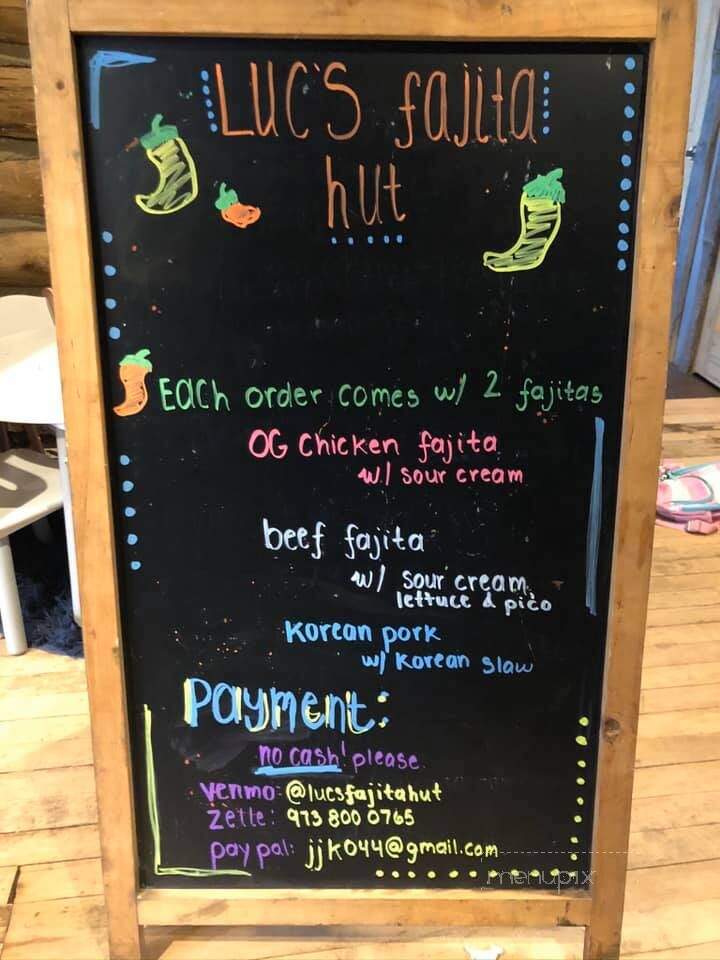 LUC'S fajita
hut
Each order comes w/ 2 fajitas
OG Chicken fajita
w/ sour cream
beef fajita
w/ sour cream,
lettuce & pico
Korean pork
w/ Korean slaw
Payment:
no cash! please
venmo: @lucsfajitahut
zelle: 973 800 0765
paypal: jjk044@gmail.com
menupix